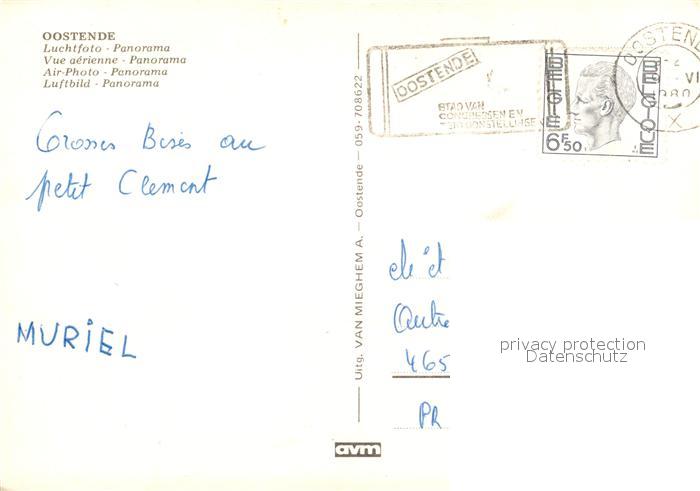 OOSTENDE
Luchtfoto - Panorama
Vue aérienne - Panorama
Air-Photo - Panorama
Luftbild - Panorama
Grosses Bises au
petit Clement
MURIEL
Uitg. VAN MIEGHEM A. — Oostende — 059-708622
avm
OOSTENDE
STAD VAN
CONGRESSEN EN
OOSTENDE
VI
X
BELGIE
BELGIQUE
6F50
465
PR
privacy protection
Datenschutz